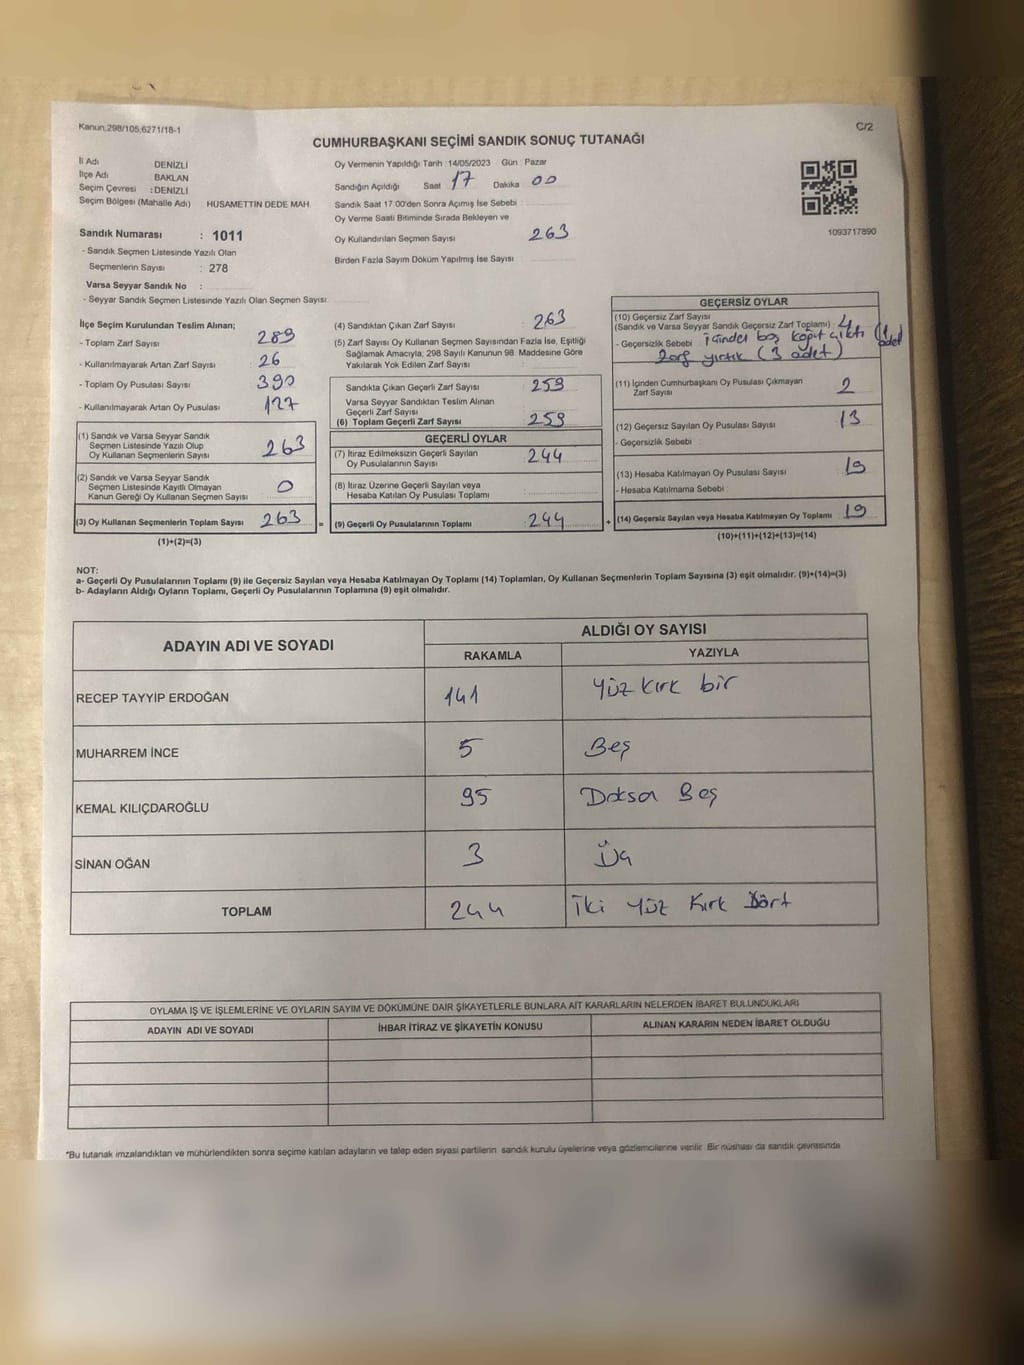 Kanun,298/105;6271/18-1
C/2
CUMHURBAŞKANI SEÇİMİ SANDIK SONUÇ TUTANAĞI
İl Adı DENİZLİ
İlçe Adı BAKLAN
Seçim Çevresi : DENİZLİ
Seçim Bölgesi (Mahalle Adı) : HÜSAMETTİN DEDE MAH.
Sandık Numarası : 1011
- Sandık Seçmen Listesinde Yazılı Olan
Seçmenlerin Sayısı : 278
Varsa Seyyar Sandık No :
- Seyyar Sandık Seçmen Listesinde Yazılı Olan Seçmen Sayısı:
Oy Vermenin Yapıldığı Tarih : 14/05/2023 Gün : Pazar
Sandığın Açıldığı Saat 17 Dakika 00
Sandık Saat 17:00'den Sonra Açımış İse Sebebi :
Oy Verme Saati Bitiminde Sırada Bekleyen ve
Oy Kullandırılan Seçmen Sayısı 263
Birden Fazla Sayım Döküm Yapılmış İse Sayısı
1093717890
İlçe Seçim Kurulundan Teslim Alınan;
- Toplam Zarf Sayısı : 289
- Kullanılmayarak Artan Zarf Sayısı : 26
- Toplam Oy Pusulası Sayısı : 390
- Kullanılmayarak Artan Oy Pusulası : 127
(1) Sandık ve Varsa Seyyar Sandık
Seçmen Listesinde Yazılı Olup
Oy Kullanan Seçmenlerin Sayısı : 263
(2) Sandık ve Varsa Seyyar Sandık
Seçmen Listesinde Kayıtlı Olmayan
Kanun Gereği Oy Kullanan Seçmen Sayısı : 0
(3) Oy Kullanan Seçmenlerin Toplam Sayısı : 263
(1)+(2)=(3)
(4) Sandıktan Çıkan Zarf Sayısı : 263
(5) Zarf Sayısı Oy Kullanan Seçmen Sayısından Fazla İse, Eşitliği
Sağlamak Amacıyla, 298 Sayılı Kanunun 98. Maddesine Göre
Yakılarak Yok Edilen Zarf Sayısı :
Sandıkta Çıkan Geçerli Zarf Sayısı : 259
Varsa Seyyar Sandıktan Teslim Alınan
Geçerli Zarf Sayısı :
(6) Toplam Geçerli Zarf Sayısı : 259
GEÇERLİ OYLAR
(7) İtiraz Edilmeksizin Geçerli Sayılan
Oy Pusulalarının Sayısı : 244
(8) İtiraz Üzerine Geçerli Sayılan veya
Hesaba Katılan Oy Pusulası Toplamı :
= (9) Geçerli Oy Pusulalarının Toplamı : 244
GEÇERSİZ OYLAR
(10) Geçersiz Zarf Sayısı
(Sandık ve Varsa Seyyar Sandık Geçersiz Zarf Toplamı) : 4
- Geçersizlik Sebebi : İçinden boş kağıt çıktı (1 adet)
Zarf yırtık (3 adet)
(11) İçinden Cumhurbaşkanı Oy Pusulası Çıkmayan
Zarf Sayısı : 2
(12) Geçersiz Sayılan Oy Pusulası Sayısı : 13
- Geçersizlik Sebebi :
(13) Hesaba Katılmayan Oy Pusulası Sayısı : 19
- Hesaba Katılmama Sebebi :
+ (14) Geçersiz Sayılan veya Hesaba Katılmayan Oy Toplamı : 19
(10)+(11)+(12)+(13)=(14)
NOT:
a- Geçerli Oy Pusulalarının Toplamı (9) ile Geçersiz Sayılan veya Hesaba Katılmayan Oy Toplamı (14) Toplamları, Oy Kullanan Seçmenlerin Toplam Sayısına (3) eşit olmalıdır. (9)+(14)=(3)
b- Adayların Aldığı Oyların Toplamı, Geçerli Oy Pusulalarının Toplamına (9) eşit olmalıdır.
ADAYIN ADI VE SOYADI ALDIĞI OY SAYISI
RAKAMLA YAZIYLA
RECEP TAYYİP ERDOĞAN 141 Yüz kırk bir
MUHARREM İNCE 5 Beş
KEMAL KILIÇDAROĞLU 95 Doksa Beş
SİNAN OĞAN 3 Üç
TOPLAM 244 İki Yüz Kırk Dört
OYLAMA İŞ VE İŞLEMLERİNE VE OYLARIN SAYIM VE DÖKÜMÜNE DAİR ŞİKAYETLERLE BUNLARA AİT KARARLARIN NELERDEN İBARET BULUNDUKLARI
ADAYIN ADI VE SOYADI İHBAR İTİRAZ VE ŞİKAYETİN KONUSU ALINAN KARARIN NEDEN İBARET OLDUĞU
*Bu tutanak imzalandıktan ve mühürlendikten sonra seçime katılan adayların ve talep eden siyasi partilerin sandık kurulu üyelerine veya gözlemcilerine verilir. Bir nüshası da sandık çevresinde